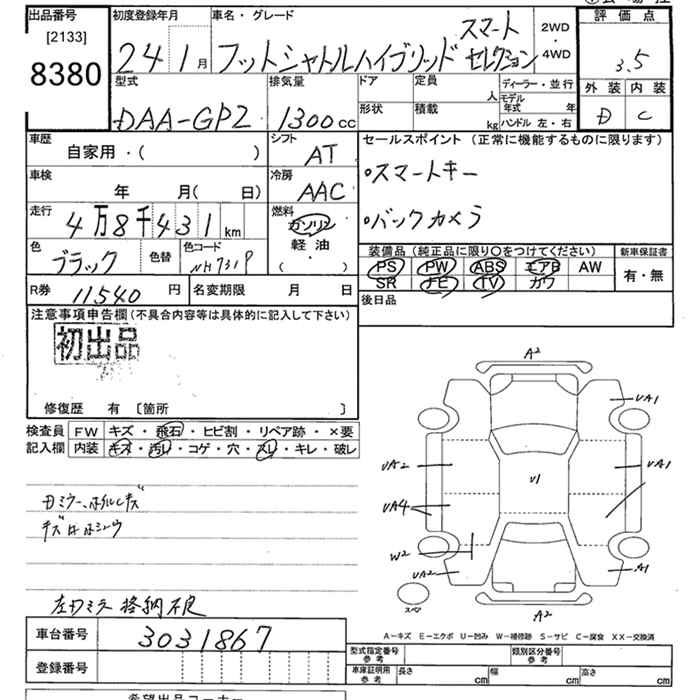 出品番号
[2133]
8380
初度登録年月
24 1月
車名・グレード
フットシャトルハイブリッド スマートセレクション
2WD
・
4WD
評価点
3.5
外装 内装
D C
型式
DAA-GP2
排気量
1300cc
ドア
形状
定員
人
積載
kg
ディーラー・並行
モデル年式 年
ハンドル 左・右
車歴
自家用・( )
シフト
AT
車検
年 月( 日)
冷房
AAC
走行
4万8千431km
燃料
ガソリン
軽油
( )
色
ブラック
色替
色コード
NH731P
R券
11540円
名変期限 月 日
セールスポイント(正常に機能するものに限ります)
・スマートキー
・バックカメラ
装備品(純正品に限り〇をつけてください)
PS PW ABS エアB AW
SR ナビ TV カワ
新車保証書
有・無
後日品
注意事項申告欄(不具合内容等は具体的に記入して下さい)
初出品
修復歴 有 〔箇所 〕
検査員記入欄
FW キズ・飛石・ヒビ割・リペア跡・×要
内装 キズ・汚レ・コゲ・穴・スレ・キレ・破レ
左ドミラ格納不良
車台番号
3031867
登録番号
希望出品コーナー
A2
UA1
UA2
U1
UA1
UA4
W2
UA2
A1
スペア
A2
A-キズ E-エクボ U-凹み W-補修跡 S-サビ C-腐食 XX-交換済
型式指定番号 参考
類別区分番号 参考
車庫証明用 参考
長さ cm
幅 cm
高さ cm